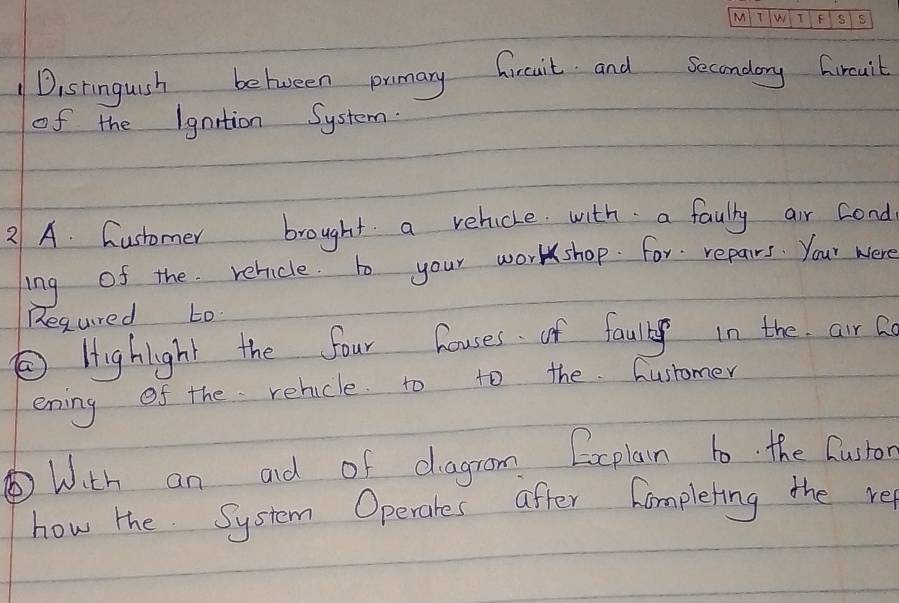 M T W T F S S
1 Distinguish between primary Circuit and Secondary Circuit
of the Ignition System.
2 A. Customer brought a vehicle with a faulty air Condi
ing of the vehicle to your workshop for repairs. Your were
Required to
(a) Highlight the four Couses of faults in the air Co
ening of the vehicle to to the Customer
(b) With an aid of diagram Explain to the Custom
how the System Operates after Completing the rep